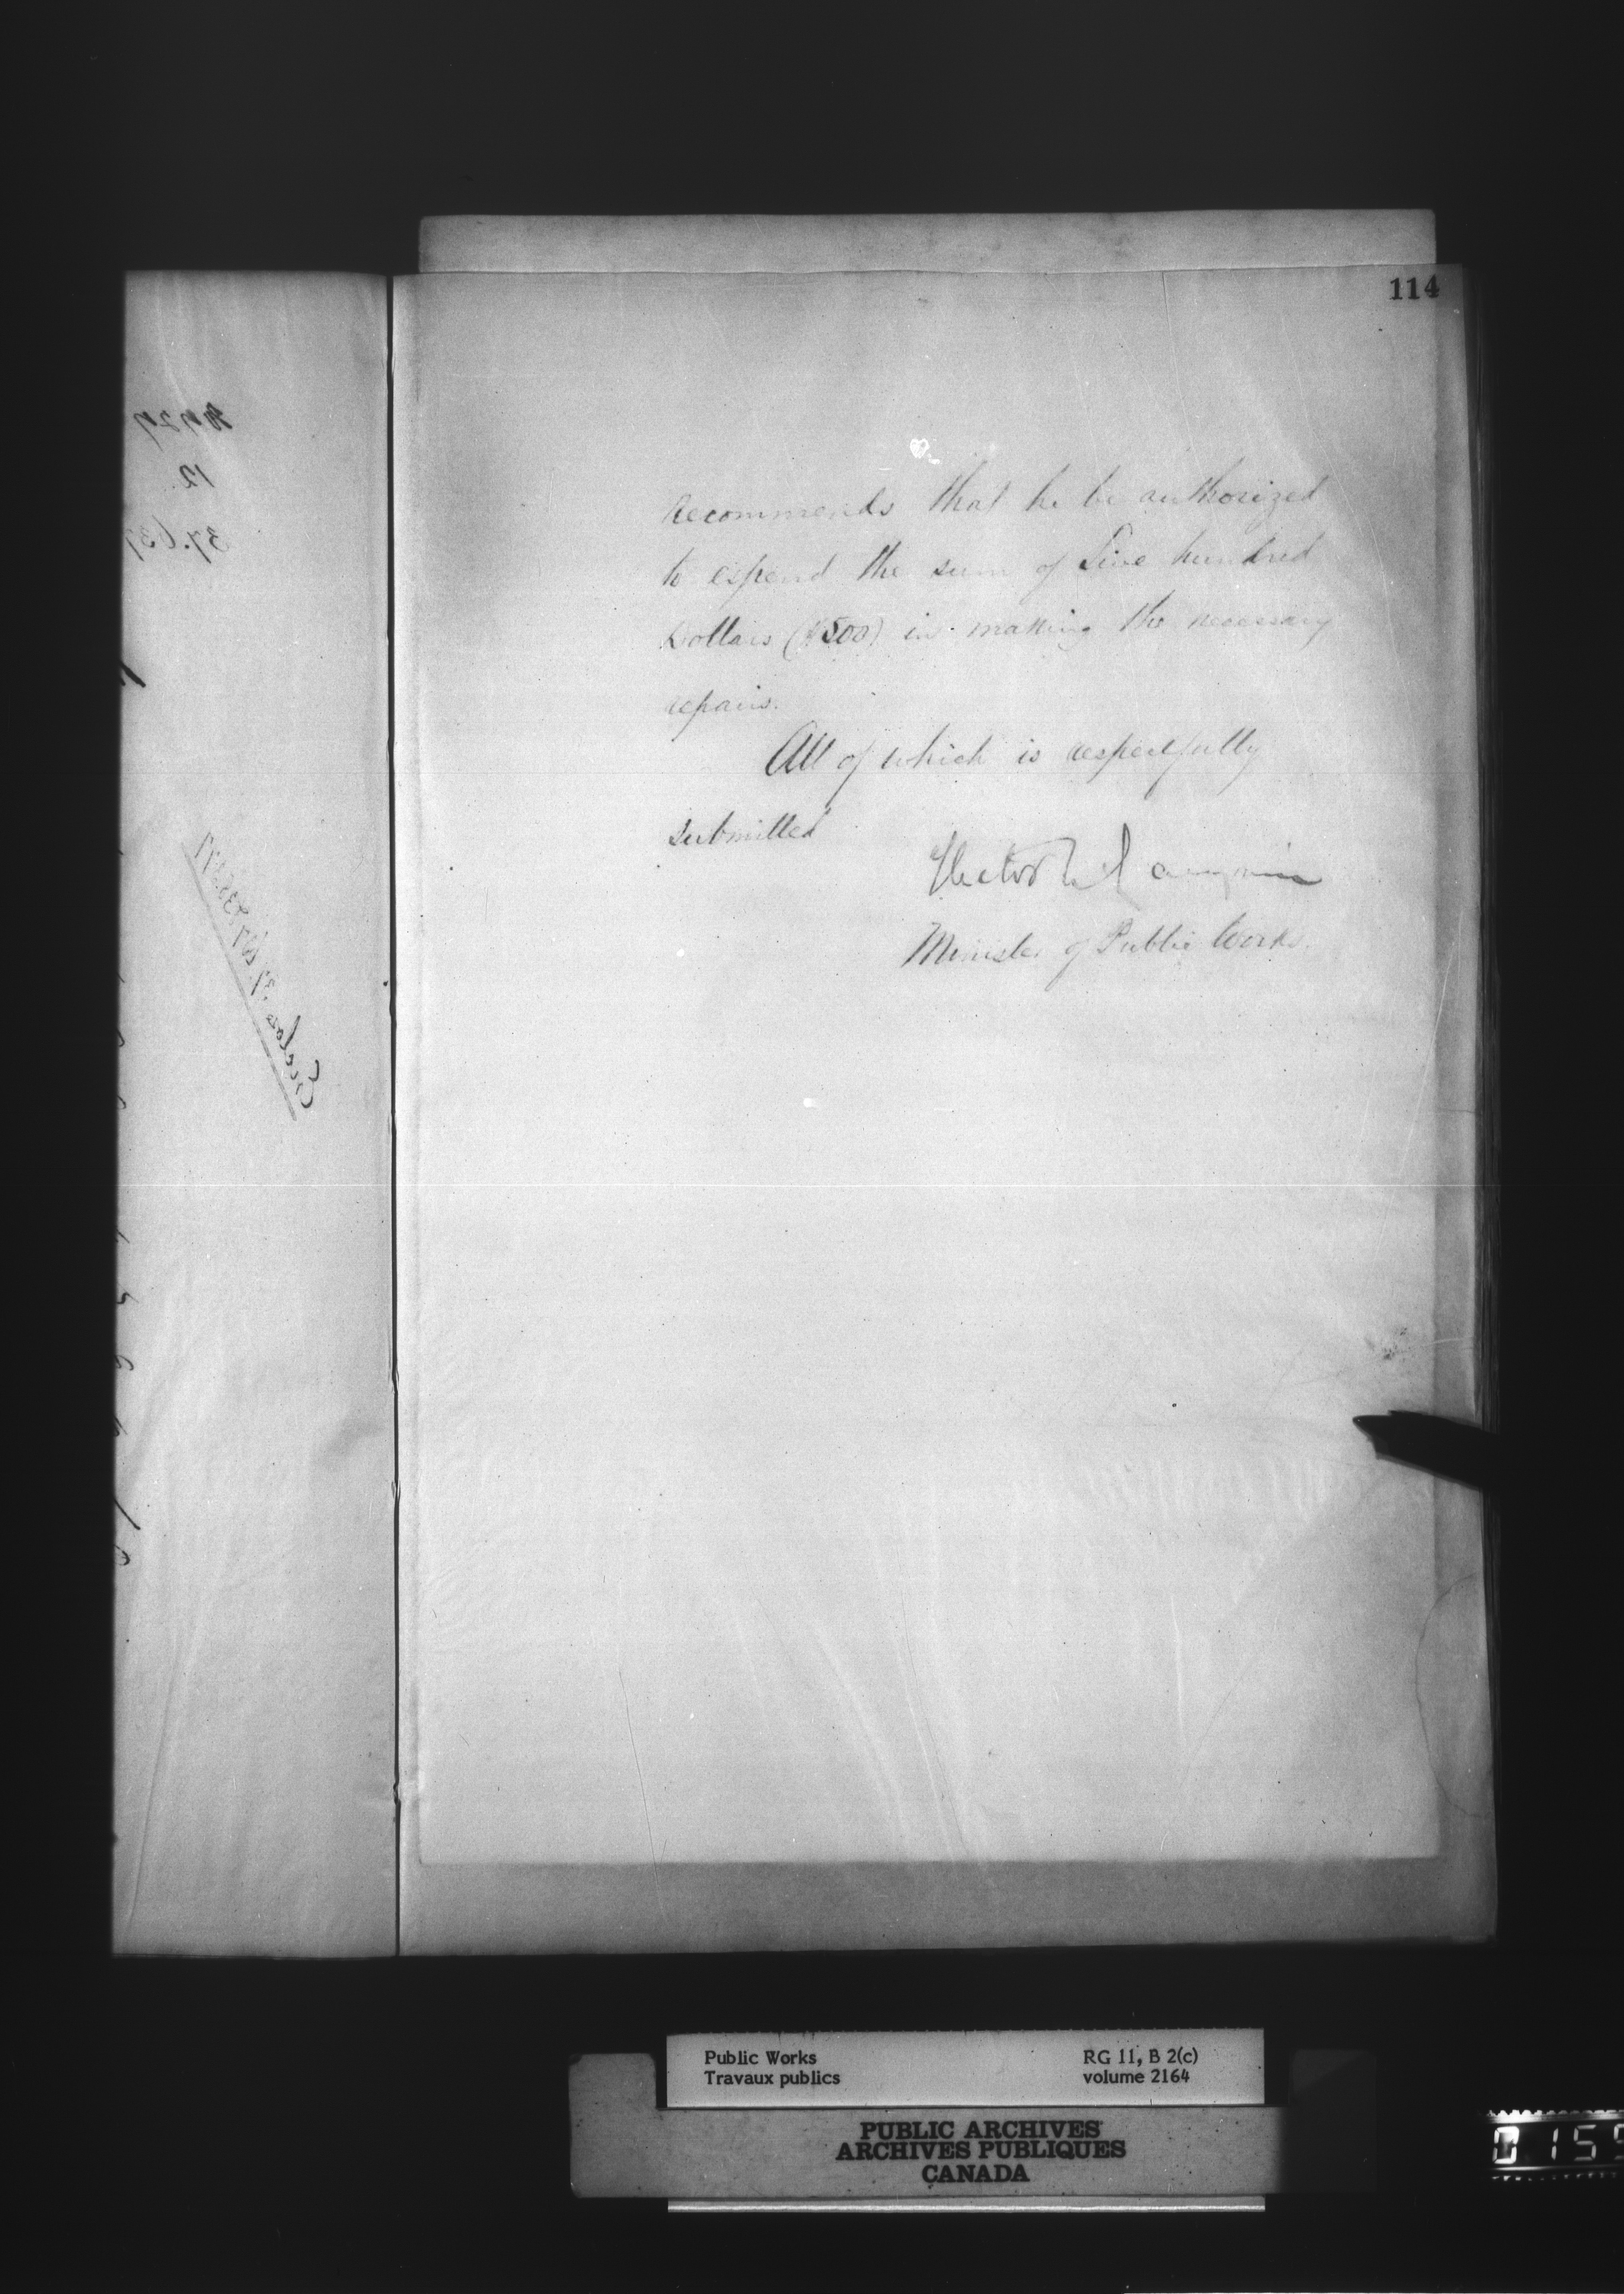 114
recommends that he be authorized
to expend the sum of Five hundred
Dollars ($500) in making the necessary
repairs.
All of which is respectfully
submitted
Hector L Langevin
Minister of Public Works.
Public Works
Travaux publics
RG 11, B 2(c)
volume 2164
PUBLIC ARCHIVES
ARCHIVES PUBLIQUES
CANADA